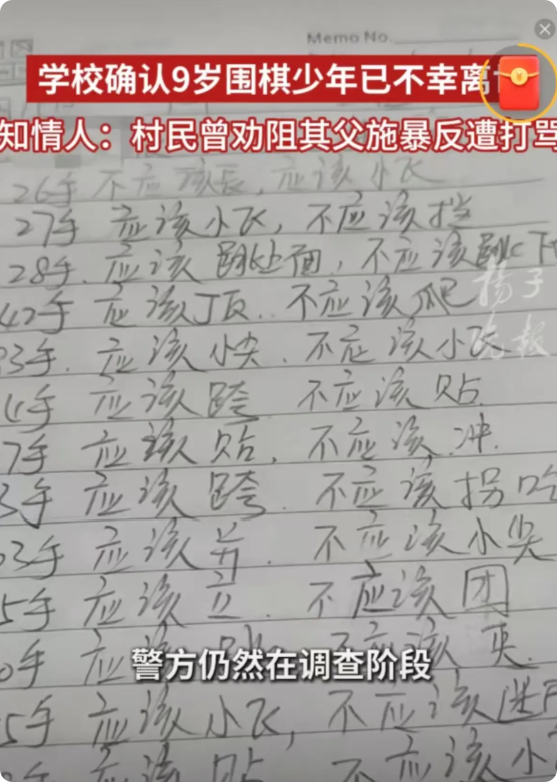 Memo No.
学校确认9岁围棋少年已不幸离
知情人：村民曾劝阻其父施暴反遭打骂
26手 不应该长，应该小飞
27手 应该小飞，不应该挡
28手 应该跳处面，不应该跳下
42手 应该 不应该爬
扬子
晚报
3手 应该小尖 不应该小飞
4手 应该跨 不应该贴
7手 应该贴，不应该冲
3手 应该跨 不应该拐吃
3手 应该并 不应该小尖
5手 应该立 不应该团
0手 应该 不应该夹
警方仍然在调查阶段
5手 应该小飞，不应该
手 应该贴 不应该小